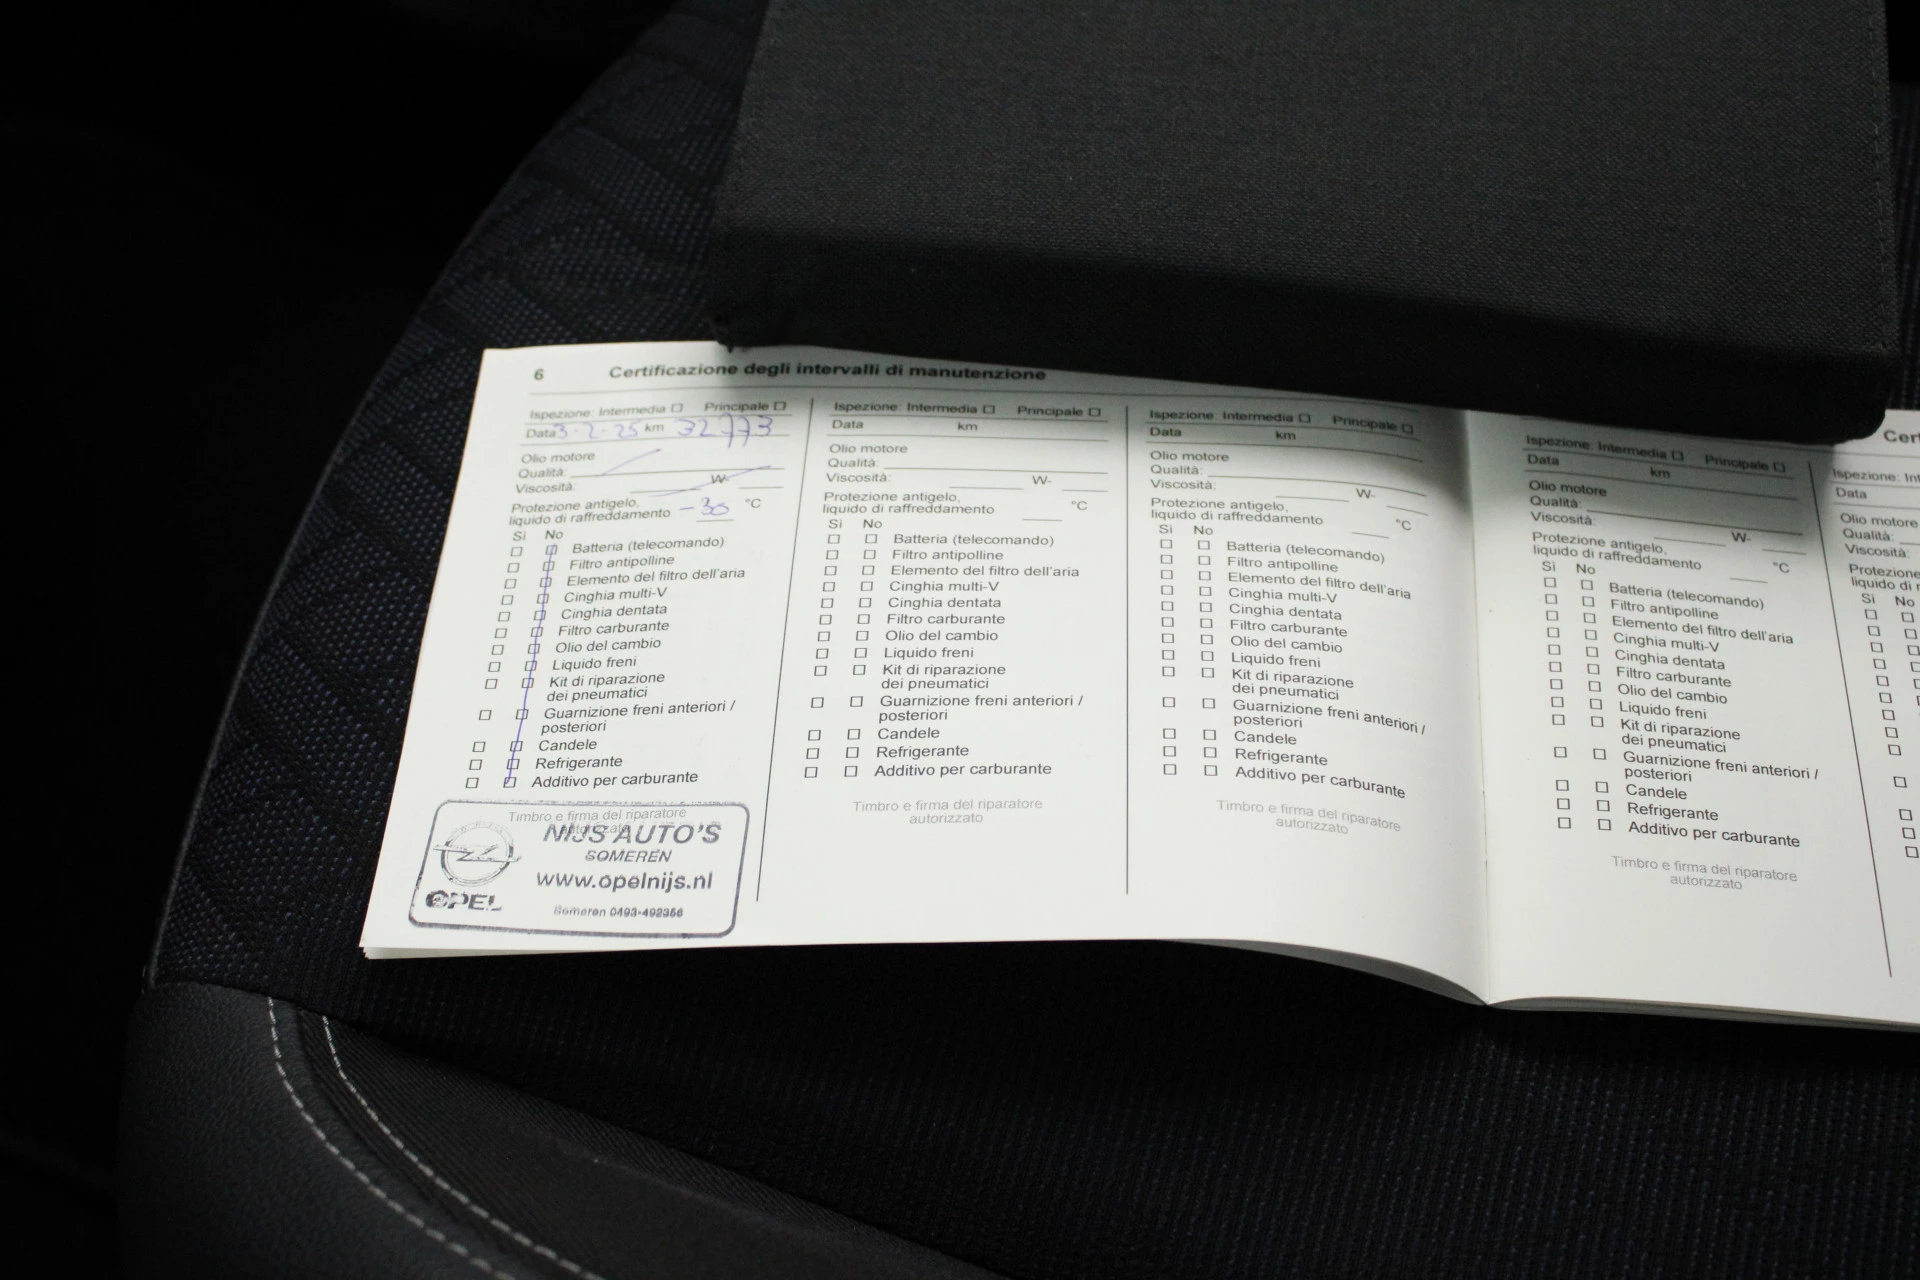 6 Certificazione degli intervalli di manutenzione
Ispezione: Intermedia ☐ Principale ☐
Data 3-2-25 km 32773
Olio motore
Qualità:
Viscosità: W-
Protezione antigelo,
liquido di raffreddamento -35 °C
Sì No
Batteria (telecomando)
Filtro antipolline
Elemento del filtro dell'aria
Cinghia multi-V
Cinghia dentata
Filtro carburante
Olio del cambio
Liquido freni
Kit di riparazione
dei pneumatici
Guarnizione freni anteriori /
posteriori
Candele
Refrigerante
Additivo per carburante
Timbro e firma del riparatore
autorizzato
NIJS AUTO'S
SOMEREN
www.opelnijs.nl
OPEL
Someren 0493-492356
Ispezione: Intermedia ☐ Principale ☐
Data km
Olio motore
Qualità:
Viscosità: W-
Protezione antigelo,
liquido di raffreddamento °C
Sì No
Batteria (telecomando)
Filtro antipolline
Elemento del filtro dell'aria
Cinghia multi-V
Cinghia dentata
Filtro carburante
Olio del cambio
Liquido freni
Kit di riparazione
dei pneumatici
Guarnizione freni anteriori /
posteriori
Candele
Refrigerante
Additivo per carburante
Timbro e firma del riparatore
autorizzato
Ispezione: Intermedia ☐ Principale ☐
Data km
Olio motore
Qualità:
Viscosità: W-
Protezione antigelo,
liquido di raffreddamento °C
Sì No
Batteria (telecomando)
Filtro antipolline
Elemento del filtro dell'aria
Cinghia multi-V
Cinghia dentata
Filtro carburante
Olio del cambio
Liquido freni
Kit di riparazione
dei pneumatici
Guarnizione freni anteriori /
posteriori
Candele
Refrigerante
Additivo per carburante
Timbro e firma del riparatore
autorizzato
Ispezione: Intermedia ☐ Principale ☐
Data km
Olio motore
Qualità:
Viscosità: W-
Protezione antigelo,
liquido di raffreddamento °C
Sì No
Batteria (telecomando)
Filtro antipolline
Elemento del filtro dell'aria
Cinghia multi-V
Cinghia dentata
Filtro carburante
Olio del cambio
Liquido freni
Kit di riparazione
dei pneumatici
Guarnizione freni anteriori /
posteriori
Candele
Refrigerante
Additivo per carburante
Timbro e firma del riparatore
autorizzato
Data
Olio motore
Qualità:
Viscosità:
Protezione
liquido di
Sì No